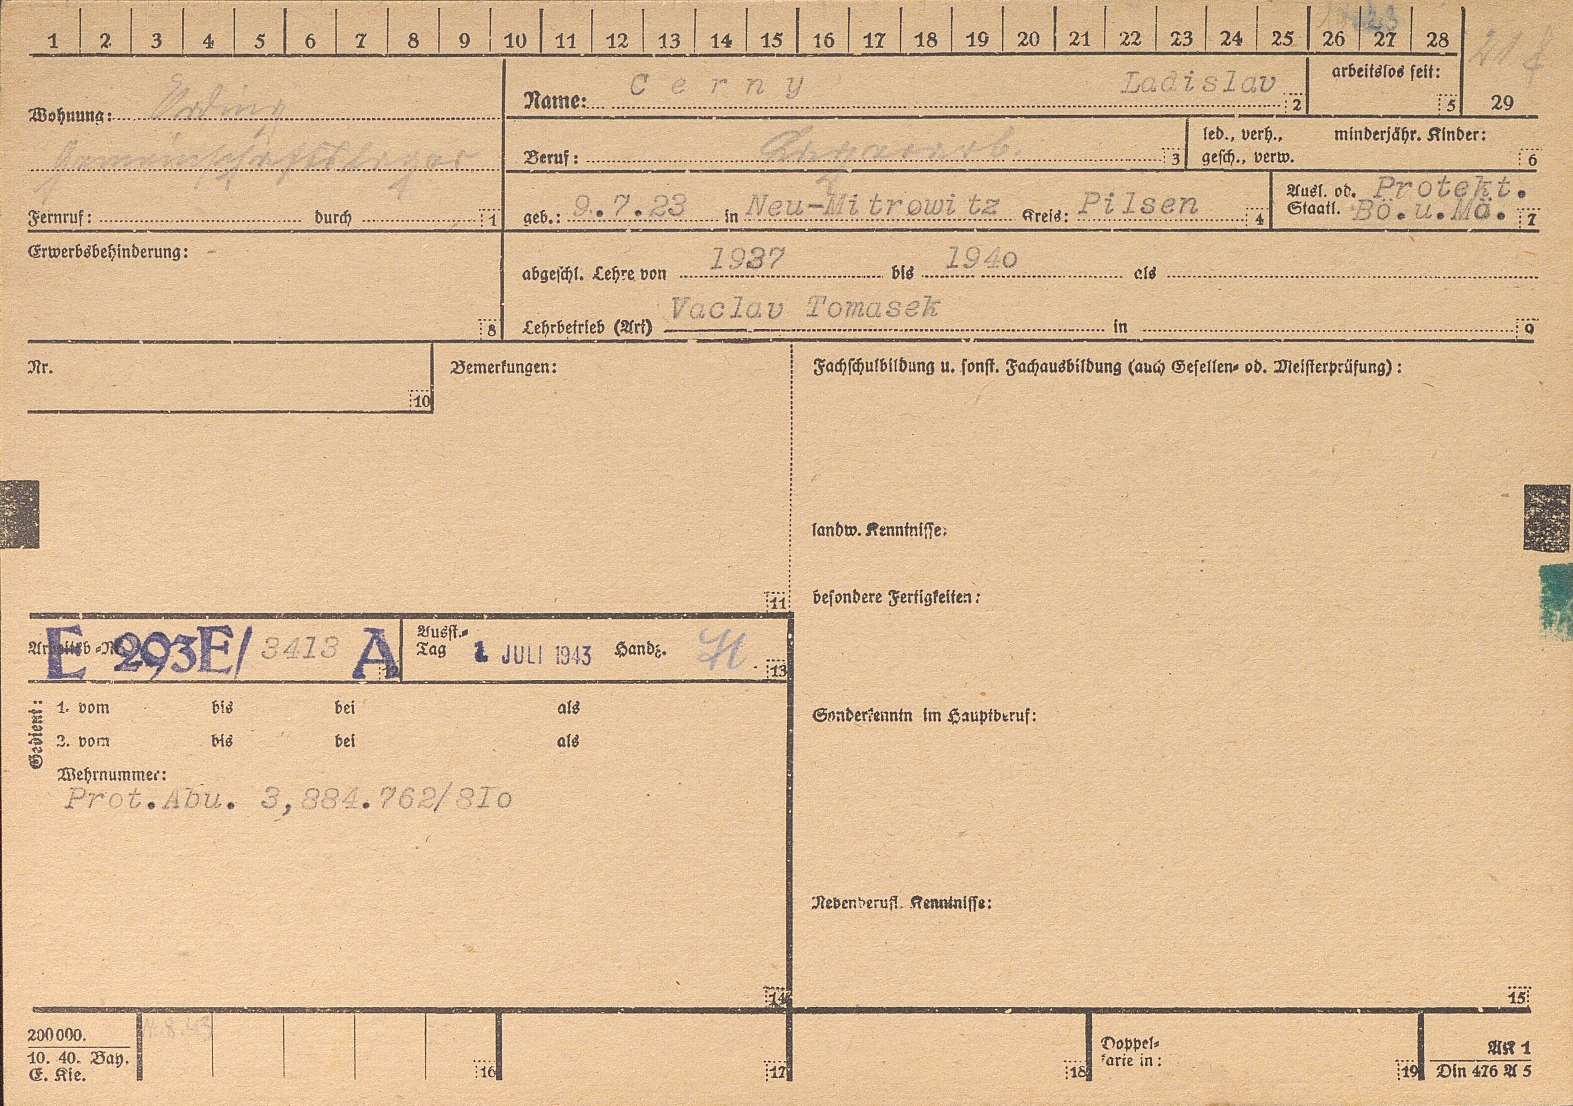 1 2 3 4 5 6 7 8 9 10 11 12 13 14 15 16 17 18 19 20 21 22 23 24 25 26 27 28 29
Wohnung: Erding
Gemeinschaftslager
Fernruf: durch 1
Name: Cerny Ladislav 2
arbeitslos seit: 5
Beruf: 3
led., verh., gesch., verw.
minderjähr. Kinder: 6
geb.: 9.7.23 in Neu-Mitrowitz Kreis: Pilsen 4
Ausl. od. Staatl. Protekt. Bö.u.Mä. 7
Erwerbsbehinderung: 8
abgeschl. Lehre von 1937 bis 1940 als
Lehrbetrieb (Art) Vaclav Tomasek in 9
Nr. 10
Bemerkungen: 11
Fachschulbildung u. sonst. Fachausbildung (auch Gesellen- od. Meisterprüfung):
landw. Kenntnisse:
besondere Fertigkeiten:
Sonderkenntn im Hauptberuf:
Nebenberufl. Kenntnisse:
15
Arbeitsb.-Nr. E 293E/ 3413 A 12
Ausst.-Tag 1 JULI 1943 Handz. 13
Gedient:
1. vom bis bei als
2. vom bis bei als
Wehrnummer:
Prot.Abu. 3,884.762/8Io
14
200000.
10. 40. Bay.
E. Kie.
16 17 18
Doppel-
karte in: 19
AK 1
Din 476 A 5